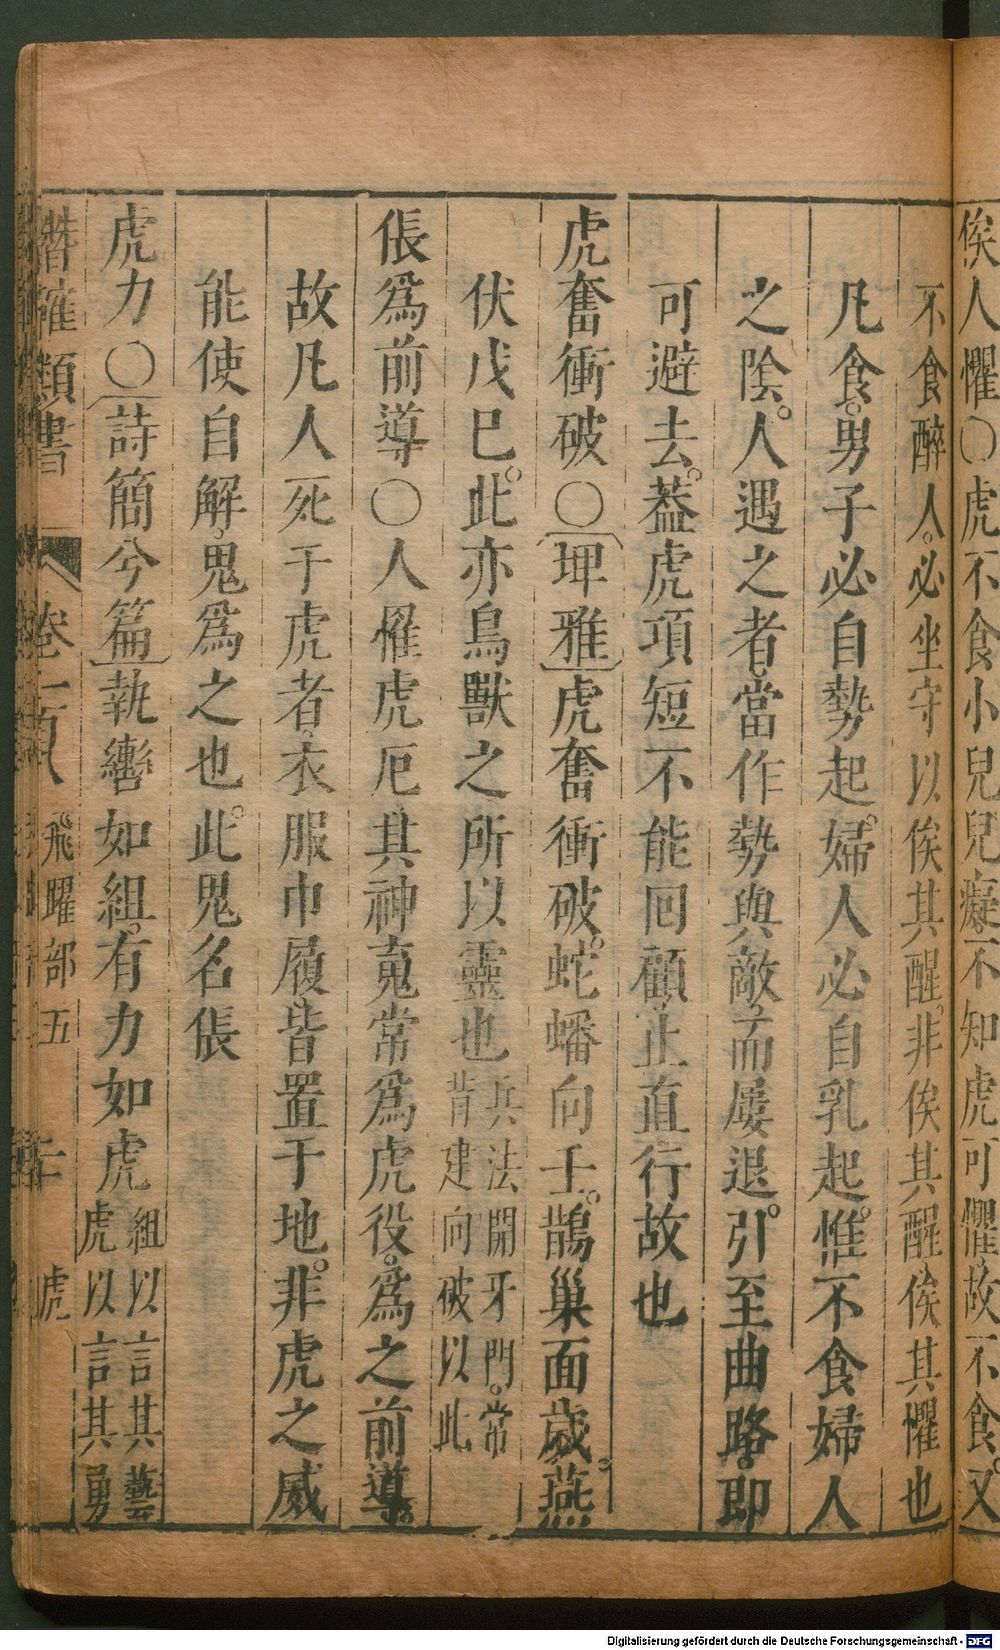 俟人懼〇虎不食小兒兒癡不知虎可懼故不食又
不食醉人必坐守以俟其醒非俟其醒俟其懼也
凡食男子必自勢起婦人必自乳起惟不食婦人
之陰人遇之者當作勢與敵而屢退引至曲路即
可避去葢虎項短不能囘顧止直行故也
虎奮衝破〇埤雅虎奮衝破蛇蟠向壬鵲巢面歲燕
伏戊巳此亦鳥獸之所以靈也兵法開牙門常
背建向破以此
倀爲前導〇人罹虎厄其神䰟常爲虎役爲之前導
故凡人死于虎者衣服巾履皆置于地非虎之威
能使自解鬼爲之也此鬼名倀
虎力〇詩簡兮篇執轡如組有力如虎組以言其藝
虎以言其勇
潛確類書 卷一百八 飛躍部五 二十 虎
Digitalisierung gefördert durch die Deutsche Forschungsgemeinschaft - DFG